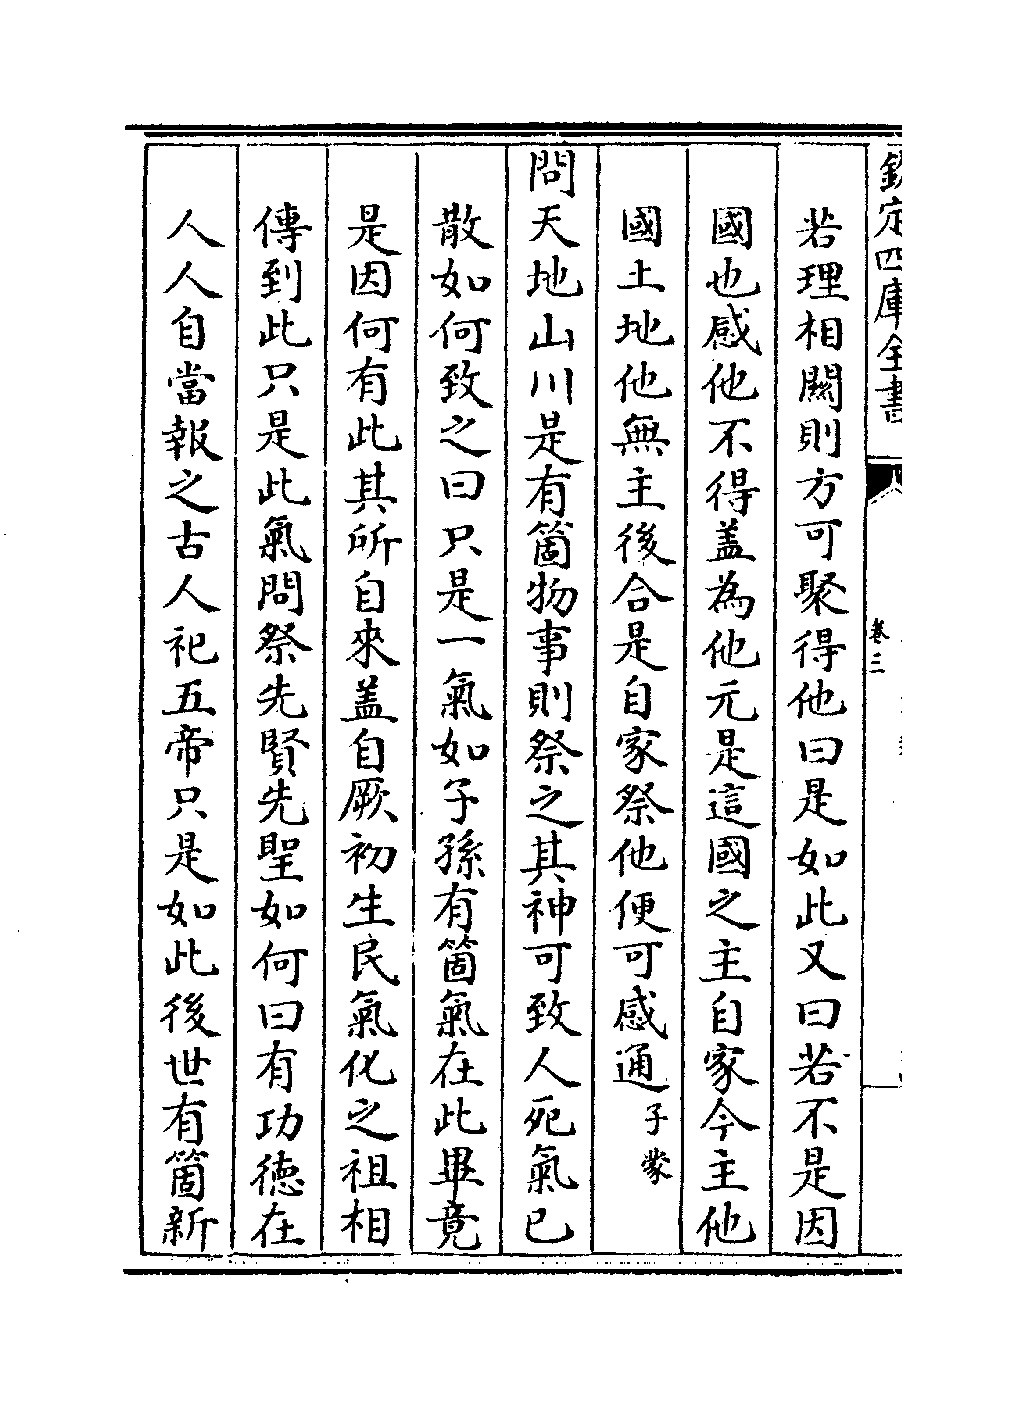 欽定四庫全書
卷三
若理相關則方可聚得他曰是如此又曰若不是因
國也感他不得盖為他元是這國之主自家今主他
國土地他無主後合是自家祭他便可感通子蒙
問天地山川是有箇物事則祭之其神可致人死氣已
散如何致之曰只是一氣如子孫有箇氣在此畢竟
是因何有此其所自來盖自厥初生民氣化之祖相
傳到此只是此氣問祭先賢先聖如何曰有功德在
人人自當報之古人祀五帝只是如此後世有箇新